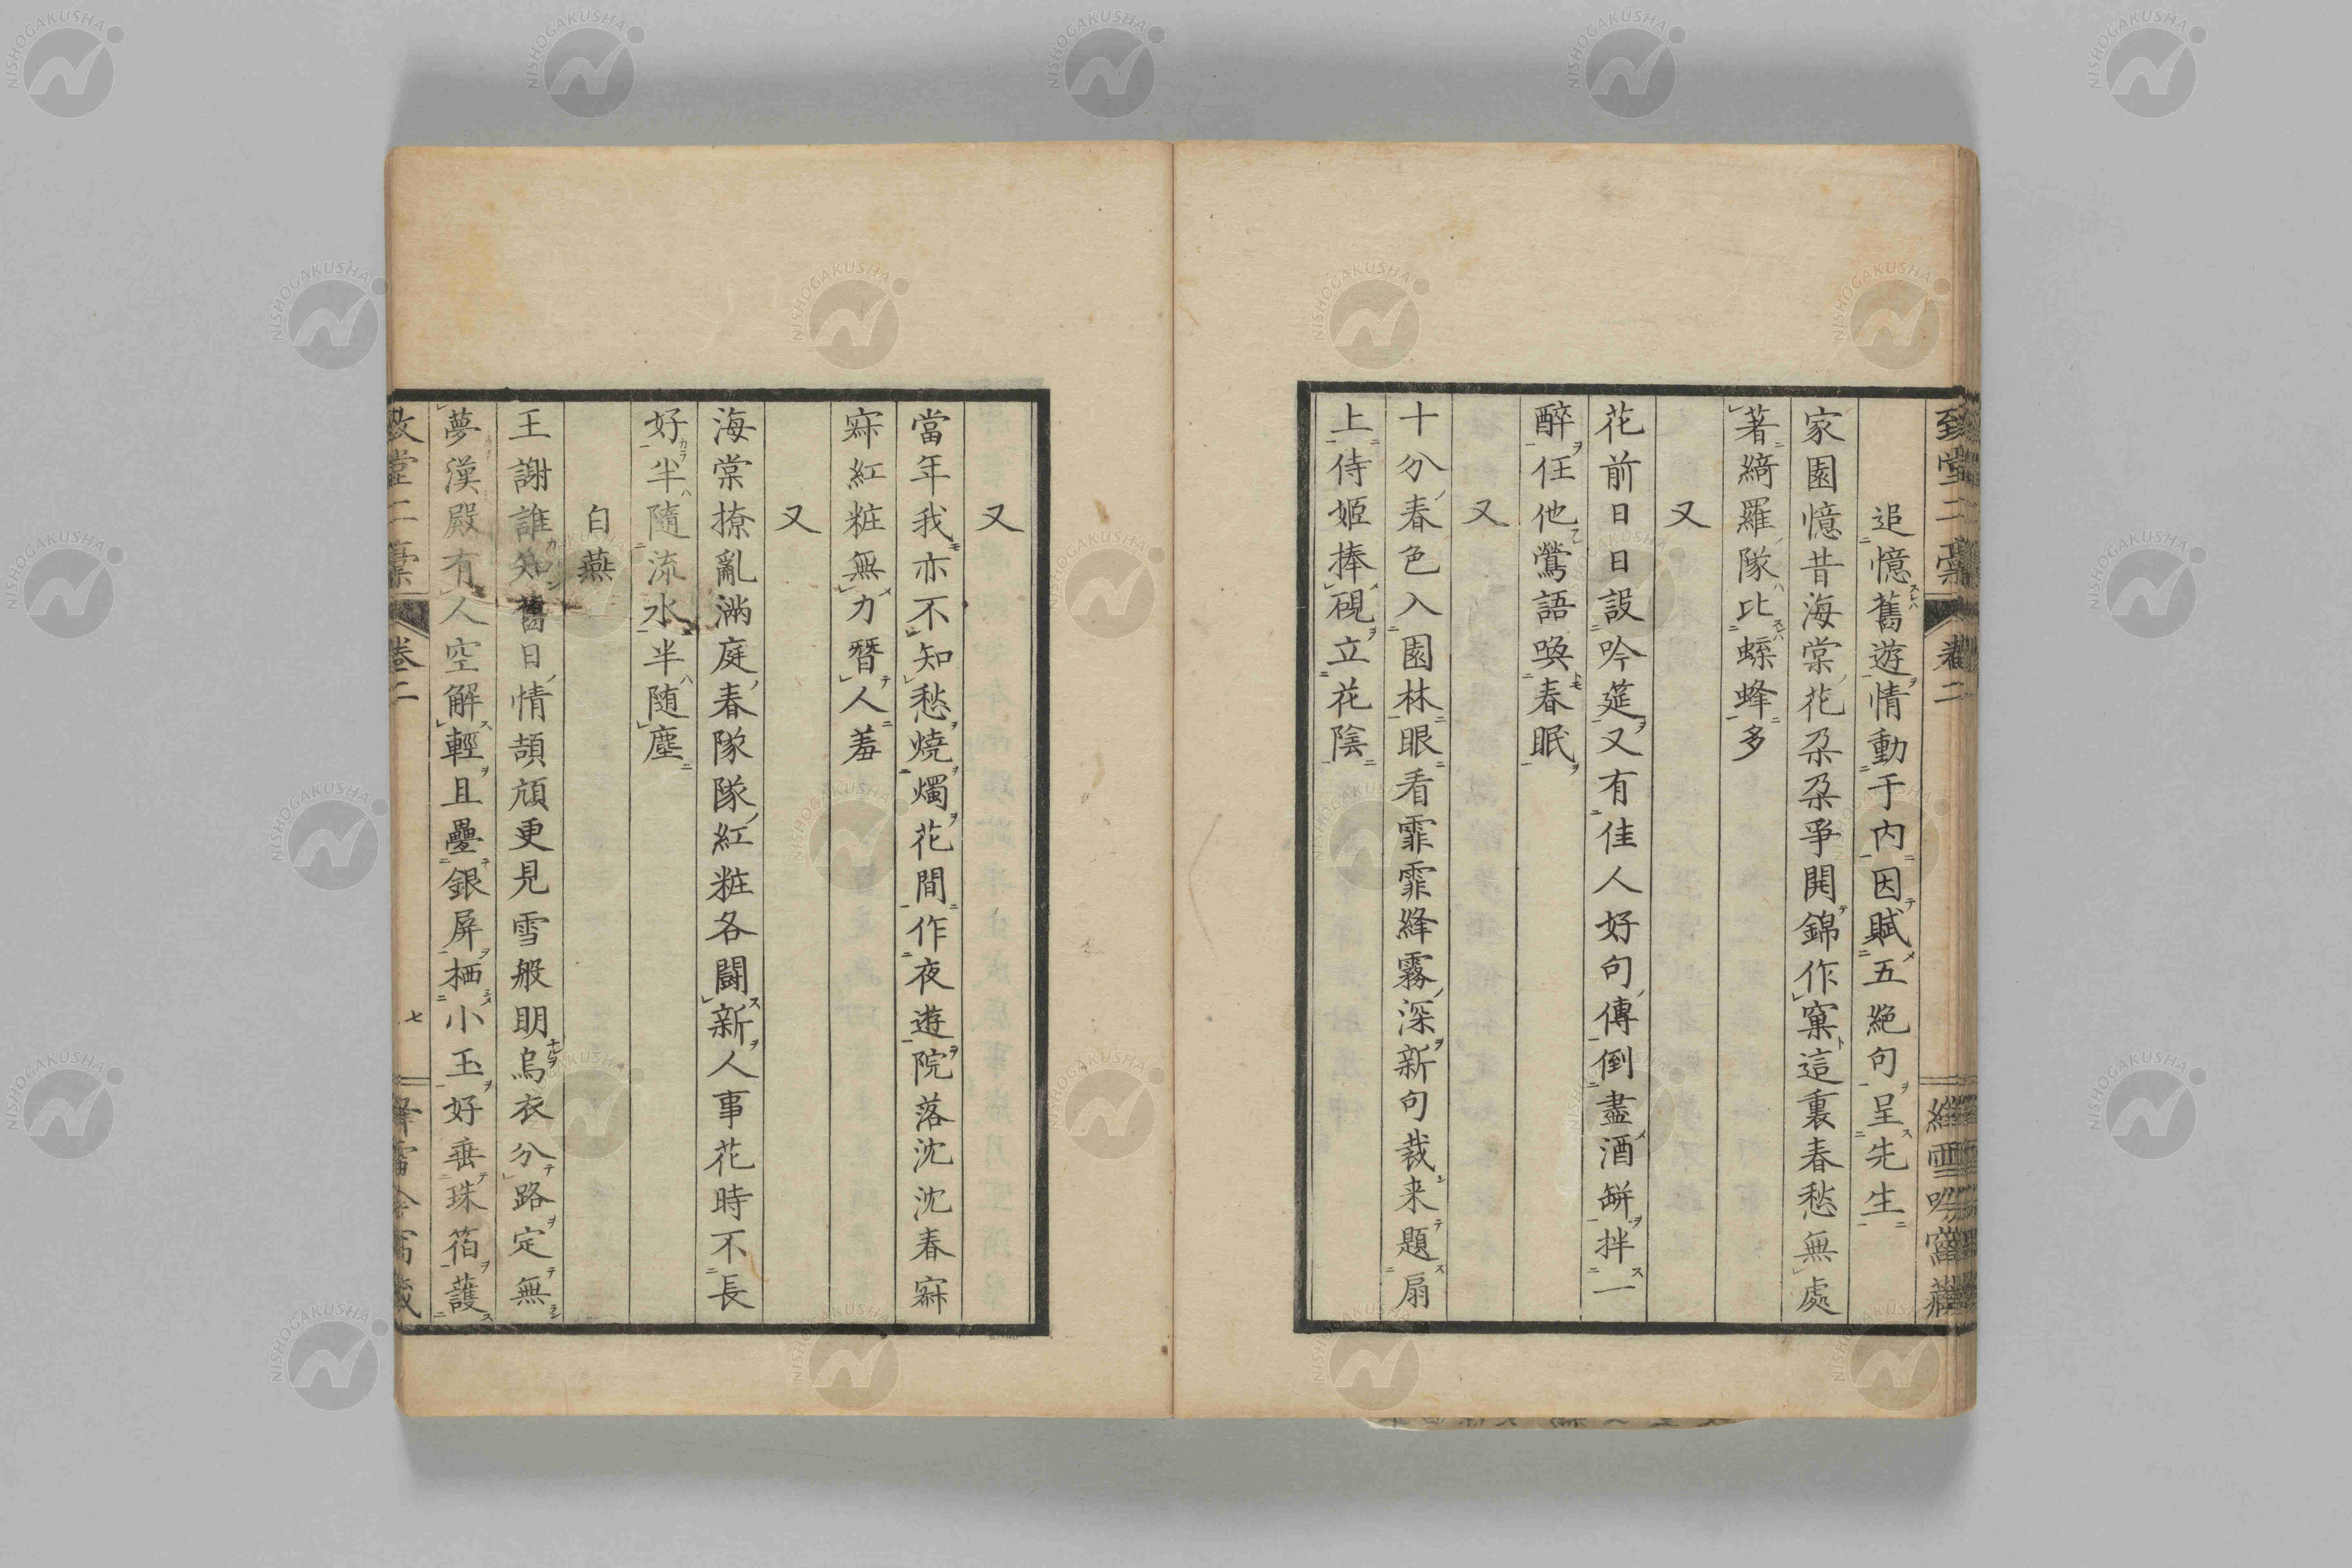 致堂二稾 卷二 維雪吟窩藏
追憶舊遊情動于内因賦五絶句呈先生
家園憶昔海棠花朶朶爭開錦作窠這裏春愁無處
著綺羅隊比蝶蜂多
又
花前日日設吟筵又有佳人好句傳倒盡酒缾拌一
醉任他鶯語喚春眠
又
十分春色入園林眼看霏霏絳霧深新句裁来題扇
上侍姬捧硯立花陰
又
當年我亦不知愁燒燭花間作夜遊院落沈沈春寂
寂紅粧無力朁人羞
又
海棠撩亂滿庭春隊隊紅粧各鬪新人事花時不長
好半隨流水半随塵
白燕
王謝誰知舊日情頡頏更見雪般明烏衣分路定無
夢漢殿有人空解輕且疊銀屏栖小玉好垂珠箔護
致堂二稾 卷二 七
NISHOGAKUSHA